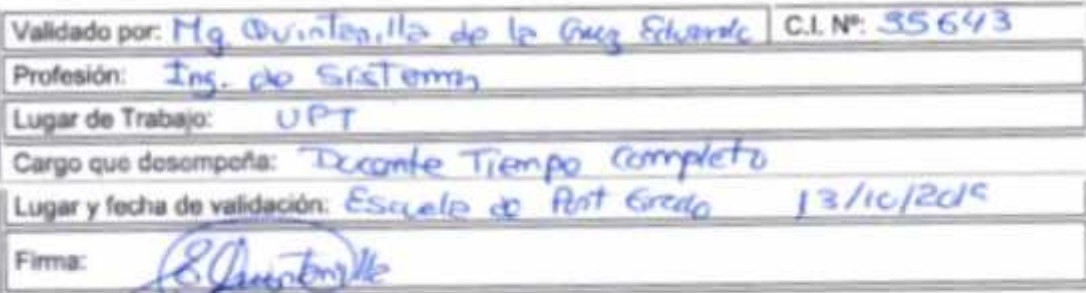 Validado por: Mg Quintanilla de la Cruz Eduardo C.I. Nº: 35643
Profesión: Ing. de Sistemas
Lugar de Trabajo: UPT
Cargo que desempeña: Docente Tiempo Completo
Lugar y fecha de validación: Escuela de Post Grado 13/10/2019
Firma: E. Quintanilla